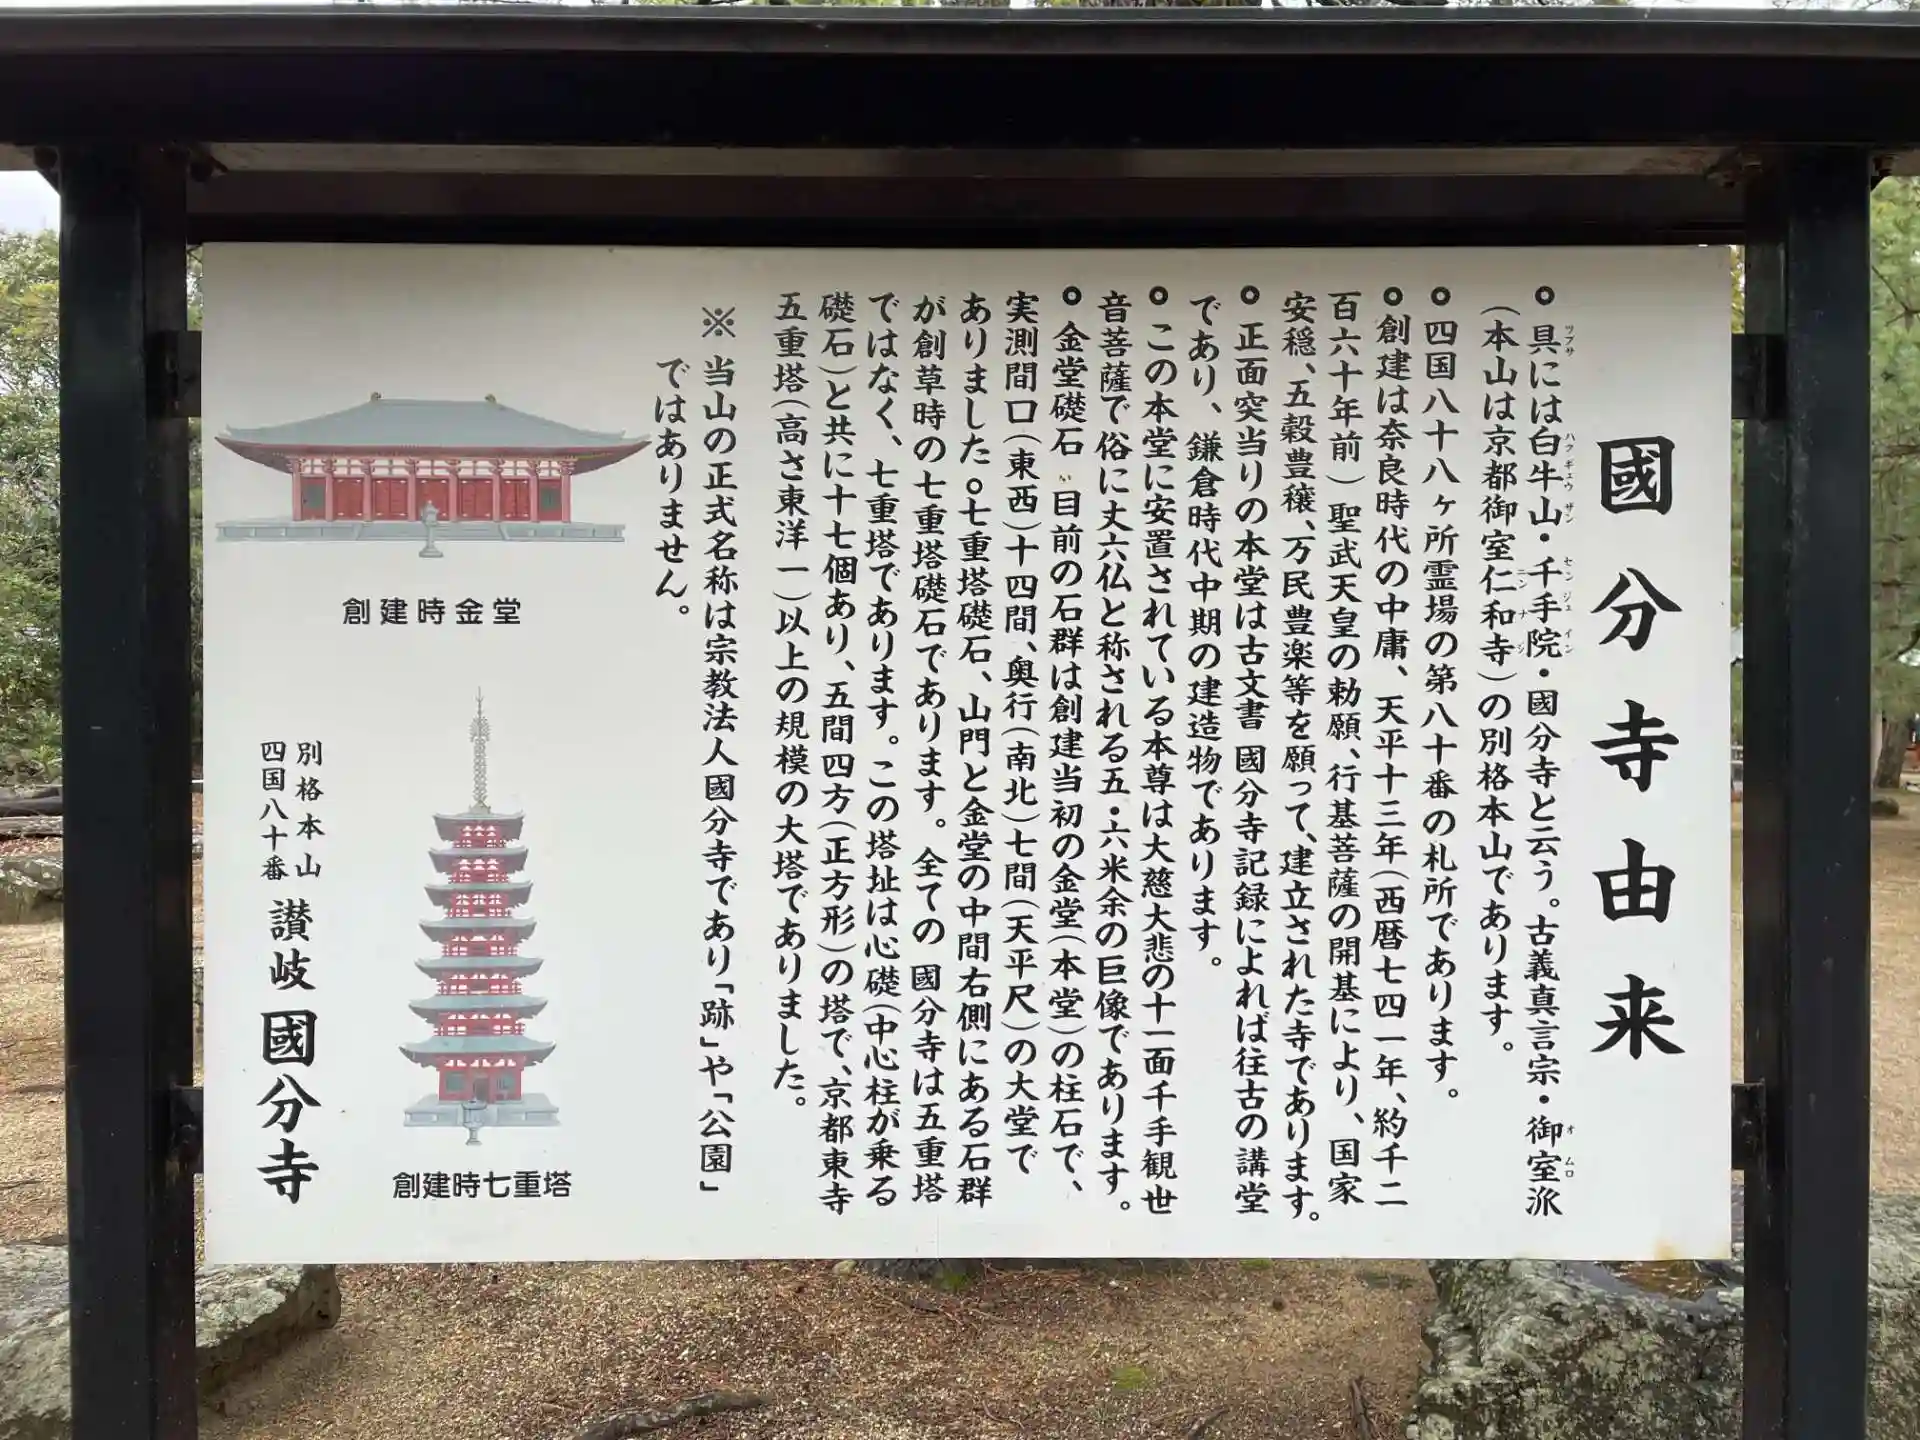 國分寺由来
○具には白牛山・千手院・國分寺と云う。古義真言宗・御室派
ツブサ ハクギュウザン センジュイン オムロ
(本山は京都御室仁和寺)の別格本山であります。
ニンナジ
○四国八十八ヶ所霊場の第八十番の札所であります。
○創建は奈良時代の中庸、天平十三年(西暦七四一年、約千二
百六十年前)聖武天皇の勅願、行基菩薩の開基により、国家
安穏、五穀豊穣、万民豊楽等を願って、建立された寺であります。
○正面突当りの本堂は古文書 國分寺記録によれば往古の講堂
であり、鎌倉時代中期の建造物であります。
○この本堂に安置されている本尊は大慈大悲の十一面千手観世
音菩薩で俗に丈六仏と称される五・六米余の巨像であります。
○金堂礎石 〃 目前の石群は創建当初の金堂(本堂)の柱石で、
実測間口(東西)十四間、奥行(南北)七間(天平尺)の大堂で
ありました。○七重塔礎石、山門と金堂の中間右側にある石群
が創草時の七重塔礎石であります。全ての 國分寺は五重塔
ではなく、七重塔であります。この塔址は心礎(中心柱が乗る
礎石)と共に十七個あり、五間四方(正方形)の塔で、京都東寺
五重塔(高さ東洋一)以上の規模の大塔でありました。
※ 当山の正式名称は宗教法人國分寺であり「跡」や「公園」
ではありません。
創建時金堂
創建時七重塔
別格本山
四国八十番
讃岐 國分寺